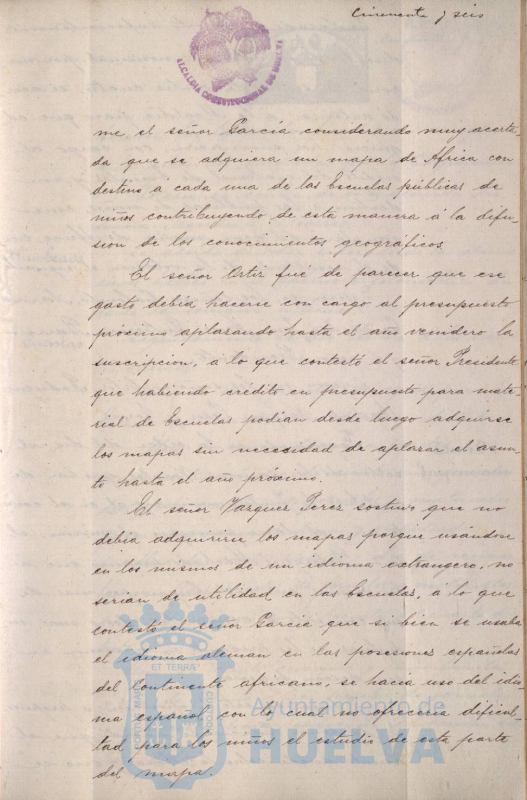 Cincuenta y seis
ALCALDIA CONSTITUCIONAL DE HUELVA
me el señor García considerando muy acerta-
da que se adquiera un mapa de África con
destino á cada una de las Escuelas públicas de
niños contribuyendo de esta manera á la difu-
sión de los conocimientos geográficos.
El señor Ortiz fué de parecer que ese
gasto debía hacerse con cargo al presupuesto
próximo aplazando hasta el año venidero la
suscripcion, á lo que contestó el señor Presidente
que habiendo crédito en presupuesto para mate-
rial de Escuelas podían desde luego adquirirse
los mapas sin necesidad de aplazar el asun-
to hasta el año próximo.
El señor Vazquez Perez sostuvo que no
debía adquirirse los mapas porque usándose
en los mismos de un idioma extrangero, no
serían de utilidad en las Escuelas, á lo que
contestó el señor García que si bien se usaba
el idioma aleman en las posesiones españolas
del Continente africano, se hacía uso del idio-
ma español con lo cual no ofrecería dificul-
tad para los niños el estudio de esta parte
del mapa.
Ayuntamiento de
HUELVA